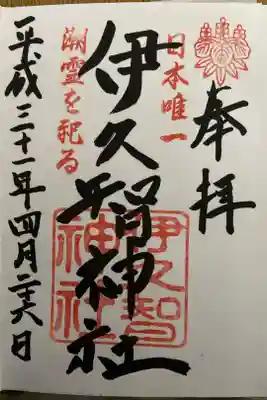 奉拝
日本唯一
霊を祀る
伊久智神社
伊久智
神社
平成三十一年四月二六日